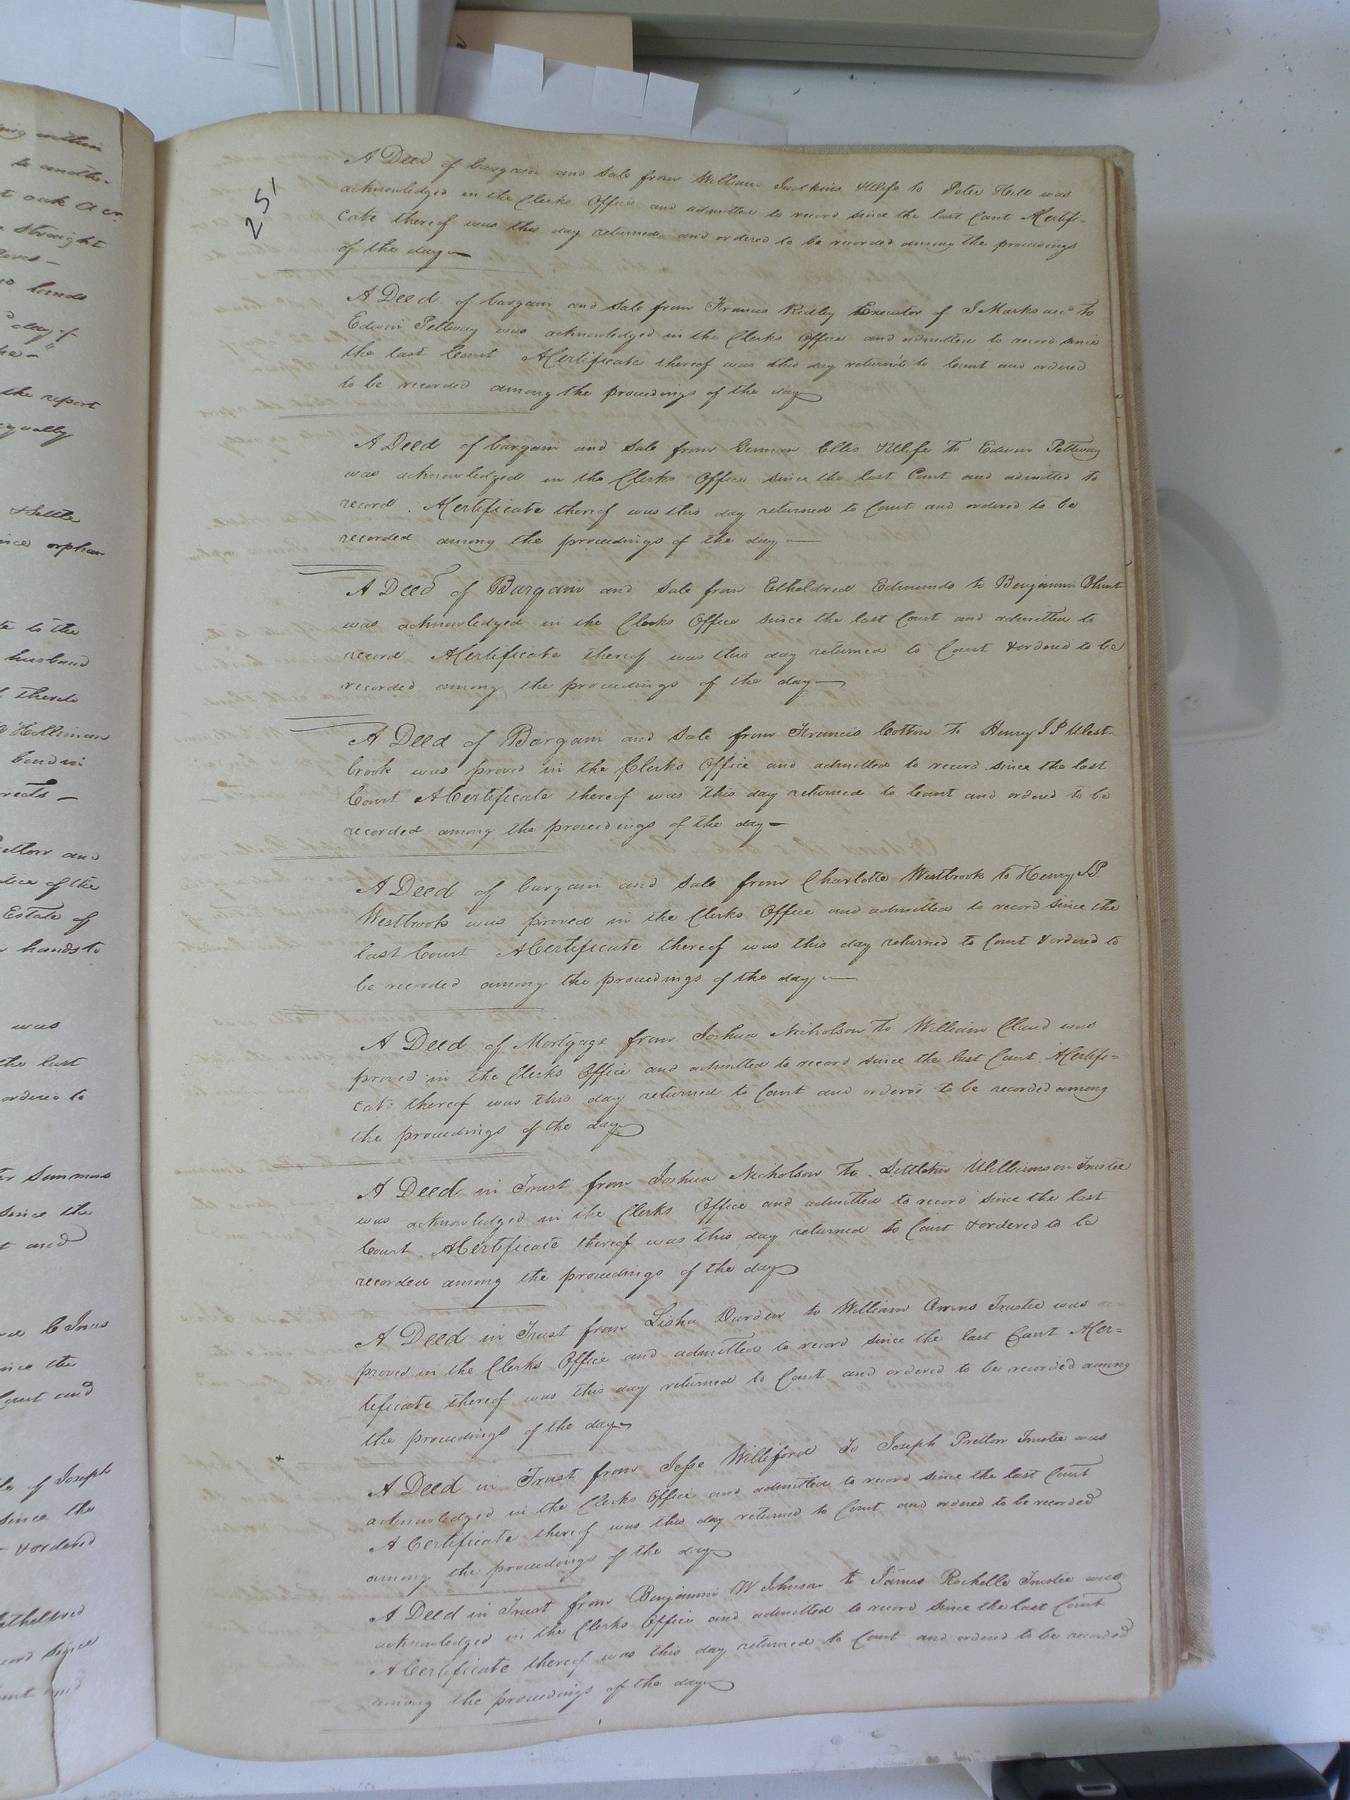 251
A Deed of bargain and Sale from William Judkins &Wife to Peter Hill was
acknowledged in the Clerks Office and admitted to record since the last Court A Certifi-
cate thereof was this day returned and ordered to be recorded among the proceedings
of the day
A Deed of bargain and Sale from Francis Ridley Executor of J Marks decd to
Edwin Pettway was acknowledged in the Clerks Office and admitted to record since
the last Court A Certificate thereof was this day returned to Court and ordered
to be recorded among the proceedings of the day
A Deed of bargain and Sale from Ellis &Wife to Edwin Pettway
was acknowledged in the Clerks Office since the last Court and admitted to
record. A Certificate thereof was this day returned to Court and ordered to be
recorded among the proceedings of the day
A Deed of Bargain and Sale from Etheldred Edmunds to Benjamin Blunt
was acknowledged in the Clerks Office since the last Court and admitted to
record A Certificate thereof was this day returned to Court &ordered to be
recorded among the proceedings of the day
A Deed of Bargain and Sale from Francis Cotton to Henry J P West-
brook was proved in the Clerks Office and admitted to record since the last
Court A Certificate thereof was this day returned to Court and ordered to be
recorded among the proceedings of the day
A Deed of bargain and Sale from Charlotte Westbrook to Henry J P
Westbrook was proved in the Clerks Office and admitted to record since the
last Court A Certificate thereof was this day returned to Court &ordered to
be recorded among the proceedings of the day
A Deed of Mortgage from Joshua Nicholson to William Claud was
proved in the Clerks Office and admitted to record since the last Court A Certifi=
cate thereof was this day returned to Court and ordered to be recorded among
the proceedings of the day
A Deed in Trust from Joshua Nicholson to Littleton Williamson Trustee
was acknowledged in the Clerks Office and admitted to record since the last
Court. A Certificate thereof was this day returned to Court &ordered to be
recorded among the proceedings of the day
A Deed in Trust from Lisha Darden to William Owens Trustee was
proved in the Clerks Office and admitted to record since the last Court A Cer=
tificate thereof was this day returned to Court and ordered to be recorded among
the proceedings of the day
A Deed in Trust from Jesse Williford To Joseph Pretlow Trustee was
acknowledged in the Clerks Office and admitted to record since the last Court
A Certificate thereof was this day returned to Court and ordered to be recorded
among the proceedings of the day
A Deed in Trust from Benjamin W Johnson to James Rochelle Trustee was
acknowledged in the Clerks Office and admitted to record since the last Court
A Certificate thereof was this day returned to Court and ordered to be recorded
among the proceedings of the day